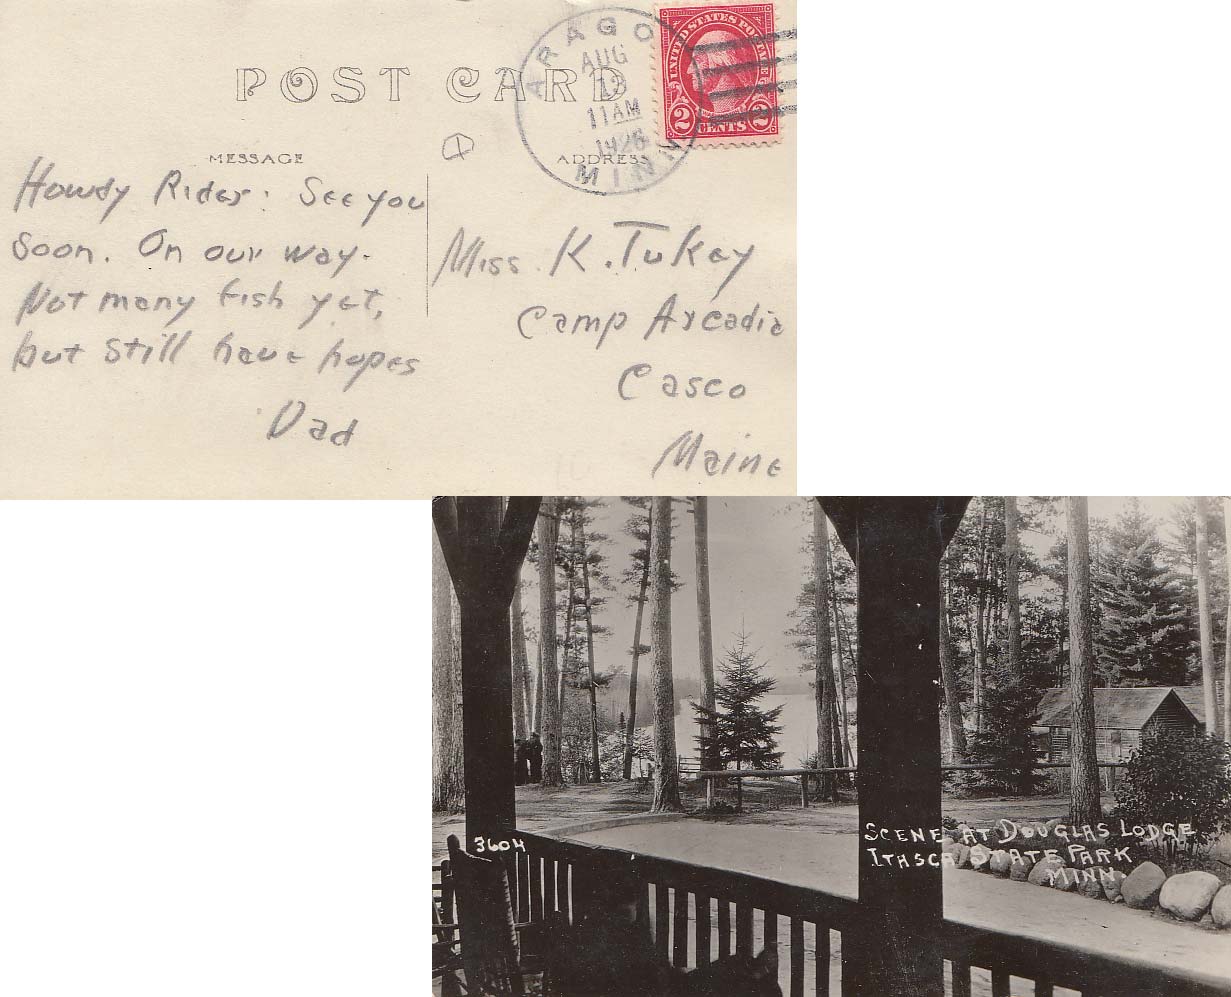 POST CARD
ARAGO
AUG
13
11AM
1926
MINN.
UNITED STATES POSTAGE
2 CENTS 2
MESSAGE
ADDRESS
Howdy Rider: See you
soon. On our way.
Not many fish yet,
but still have hopes
Dad
Miss K. Tukey
Camp Arcadia
Casco
Maine
3604
SCENE AT DOUGLAS LODGE
ITASCA STATE PARK
MINN.